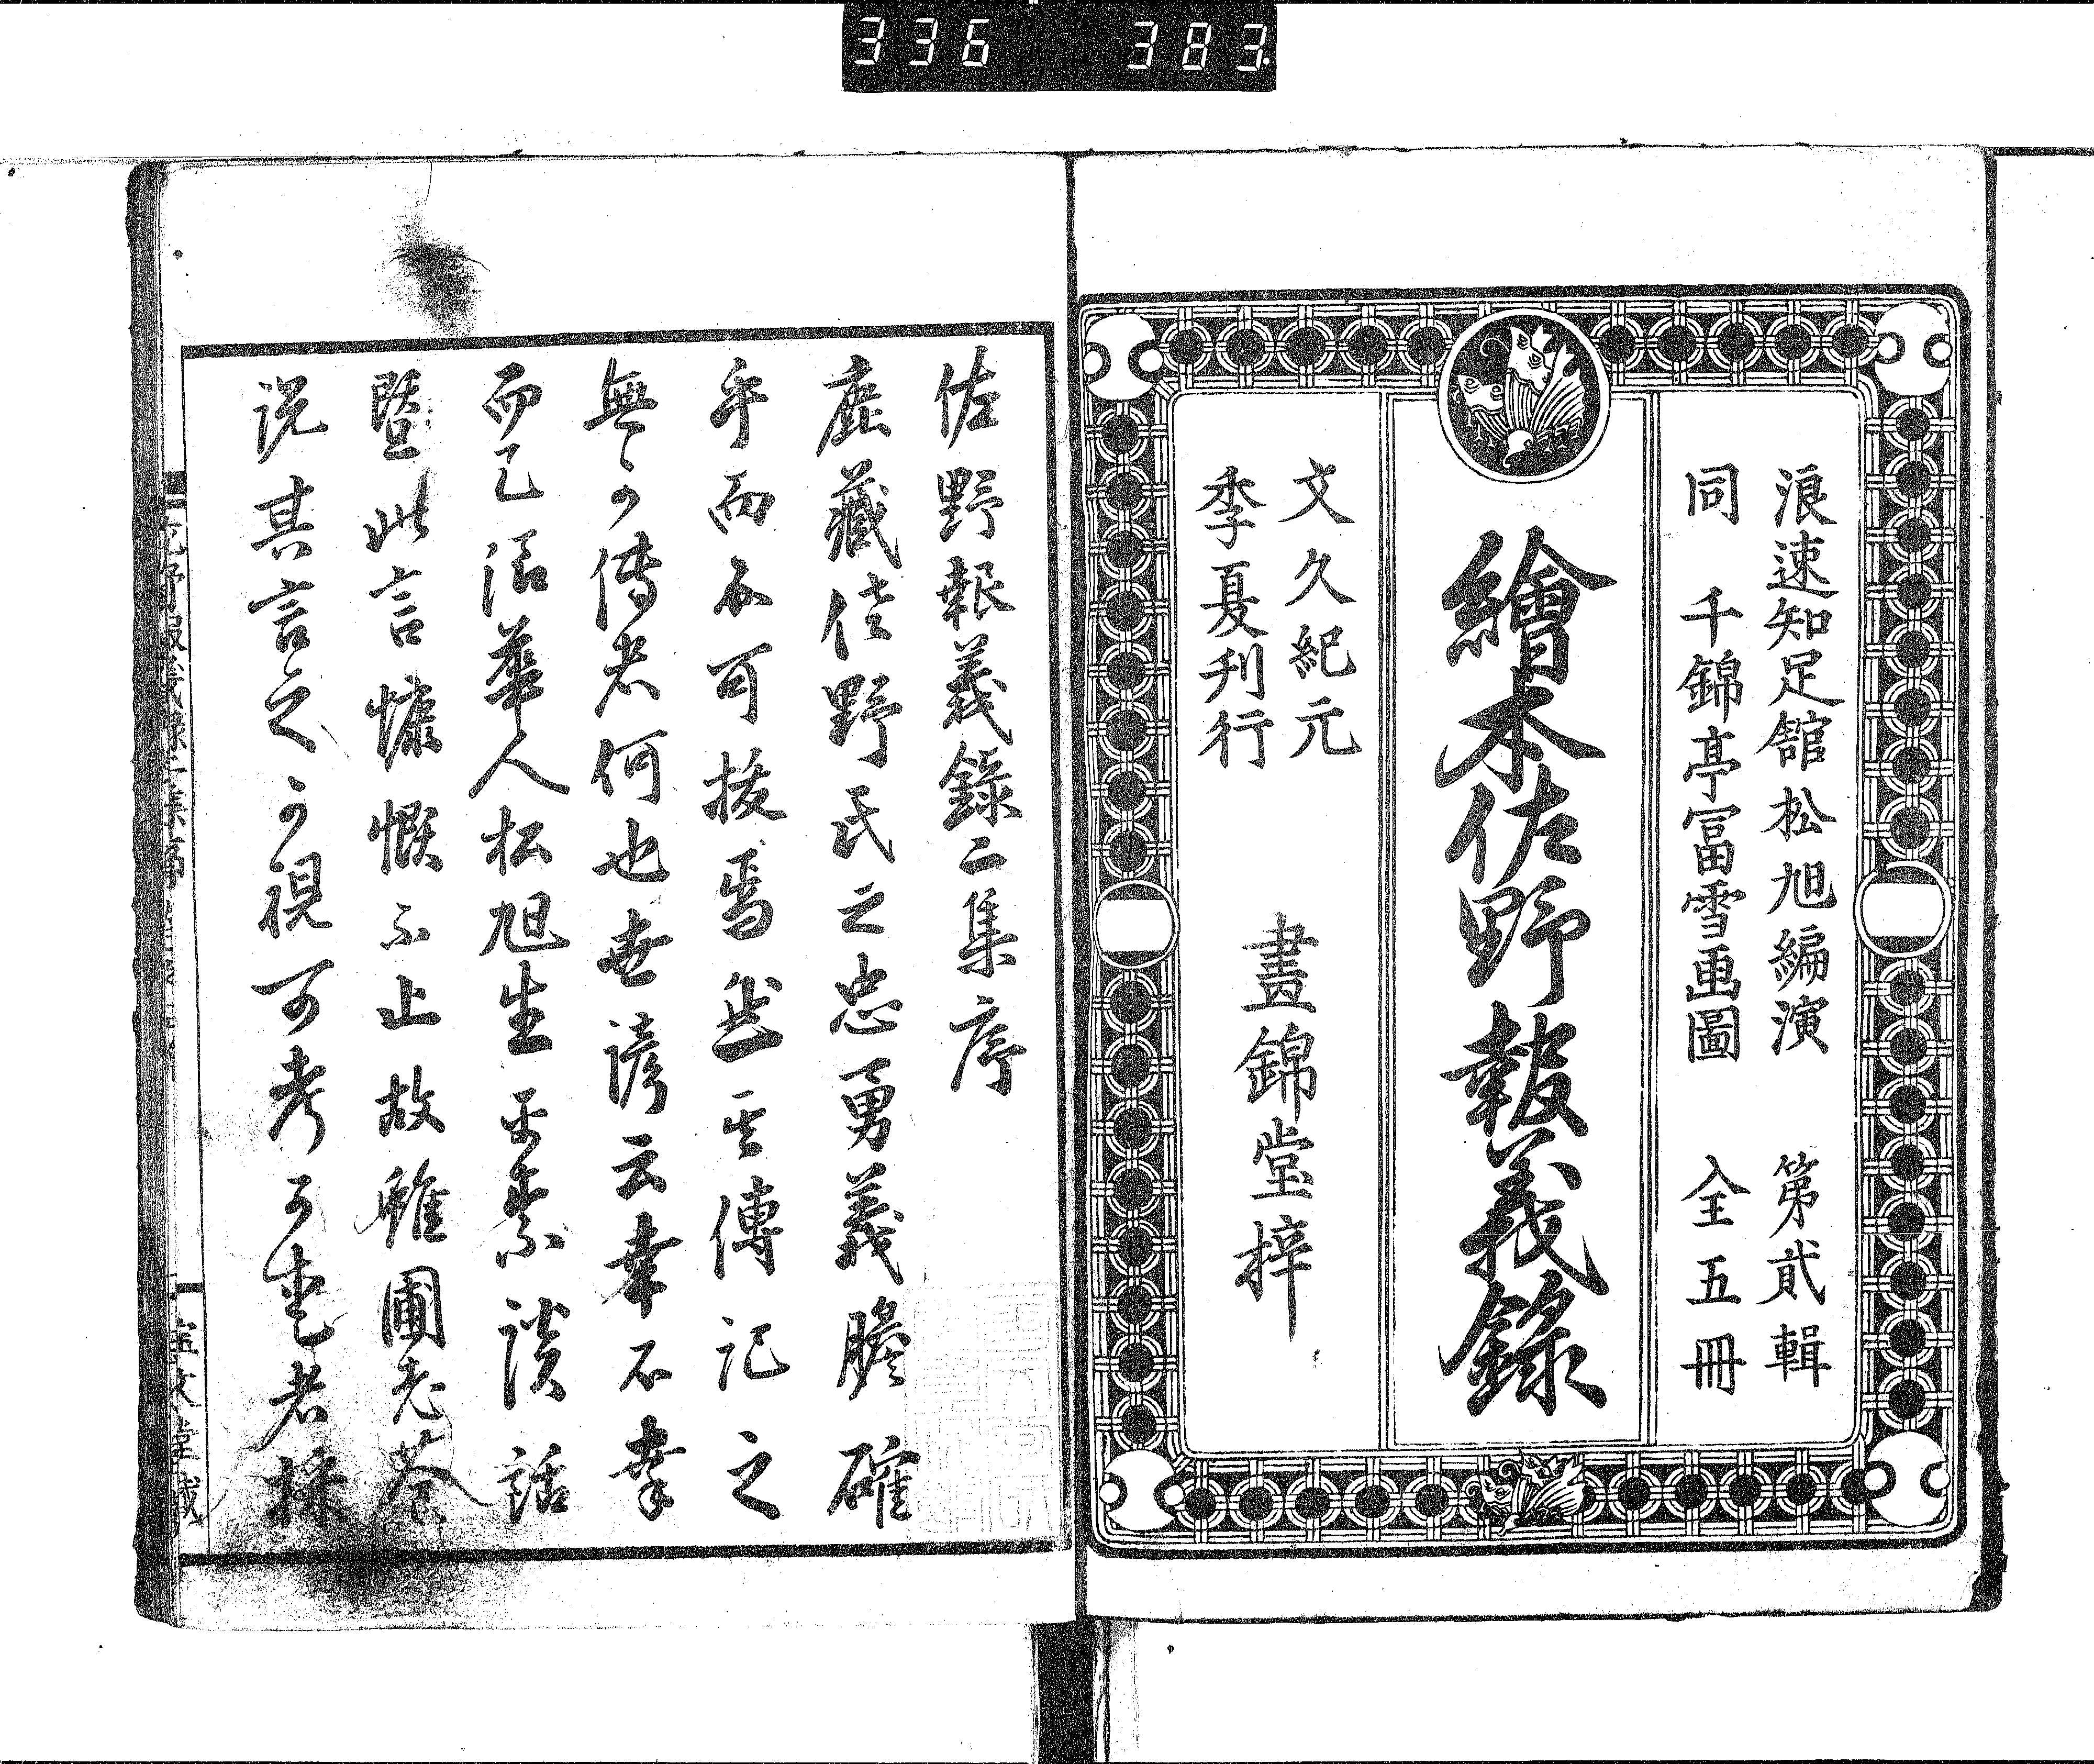 336 383
浪速知足舘松旭編演 第貳輯
同 千錦亭冨雪画圖 全五冊
繪本佐野報義錄
文久紀元
季夏刊行
盡錦堂梓
佐野報義錄二集序
鹿藏佐野氏之忠勇義膽確
乎而不可拔焉然其傳記之
無可傳者何也世諺云幸不幸
而已浪華人松旭生平素談話
曁此言慷慨不止故雖圃老
說其言之可視可考可 者採
佐野報義錄二集序
宝文堂藏